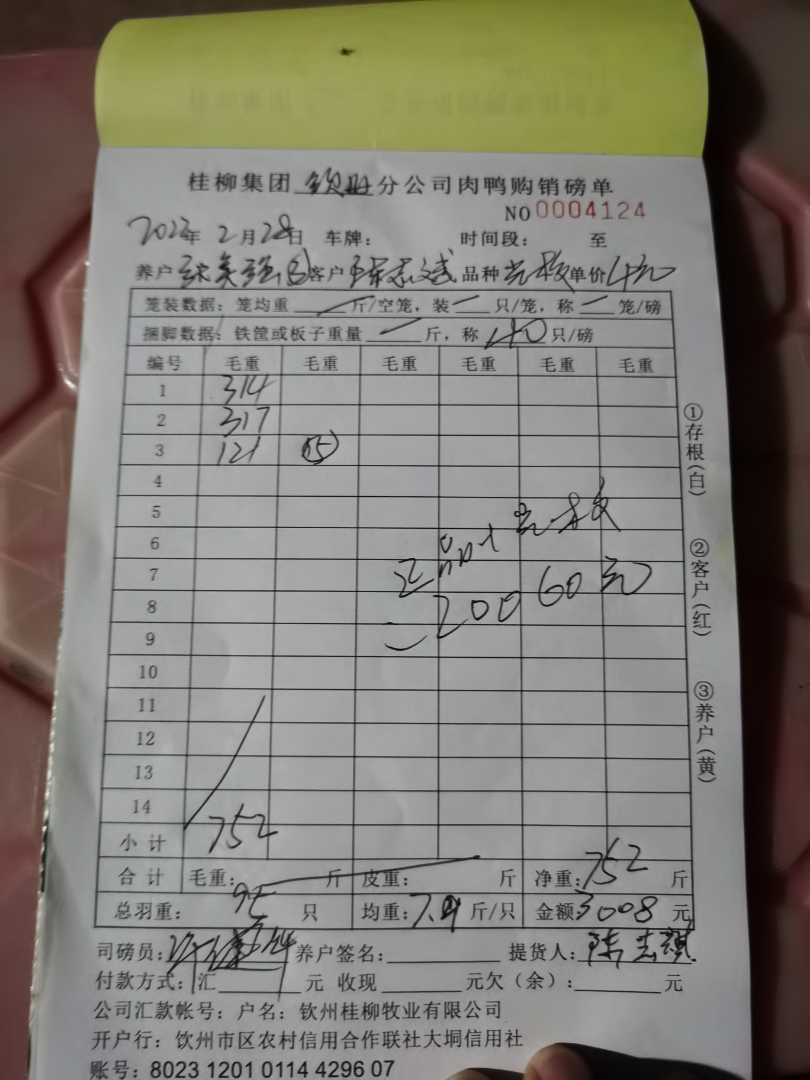 桂柳集团 钦州 分公司肉鸭购销磅单
NO 0004124
2023年 2月28日 车牌： 时间段： 至
养户 张英强 客户 陈志斌 品种 光板 单价 4元
笼装数据：笼均重 斤/空笼，装 只/笼，称 笼/磅
捆脚数据：铁筐或板子重量 斤，称 40 只/磅
编号 毛重 毛重 毛重 毛重 毛重 毛重
1 314
2 317
3 121 15
4
5
6
7
8
9
10
11
12
13
14
光板
20060元
小计 752
合计 毛重： 斤 皮重： 斤 净重：752 斤
总羽重： 95 只 均重：7.91 斤/只 金额：3008 元
司磅员： 养户签名： 提货人：陈志祺
付款方式：汇 元 收现 元欠（余）： 元
公司汇款帐号：户名：钦州桂柳牧业有限公司
开户行：饮州市区农村信用合作联社大垌信用社
账号：8023 1201 0114 4296 07
①存根（白）
②客户（红）
③养户（黄）